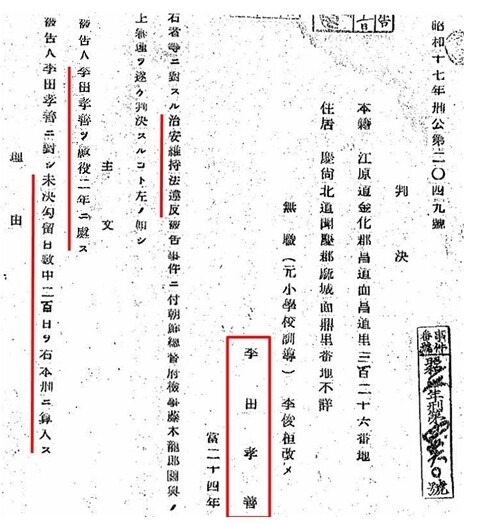 昭和十七年刑公第二〇四九號
判決
本籍 江原道金化郡昌道面昌道里三百二十六番地
住居 慶尚北道聞慶郡麻城面鼎里番地不詳
無職(元小學校訓導) 李俊恒改メ
李田孝善
當二十四年
右者等ニ對スル治安維持法違反被告事件ニ付朝鮮總督府檢事藤木龍郎關與ノ
上審理ヲ遂ケ判決スルコト左ノ如シ
主文
被告人李田孝善ヲ懲役二年ニ處ス
被告人李田孝善ニ對シ未決勾留日數中二百日ヲ右本刑ニ算入ス
理由
事件番號
年刑第
號